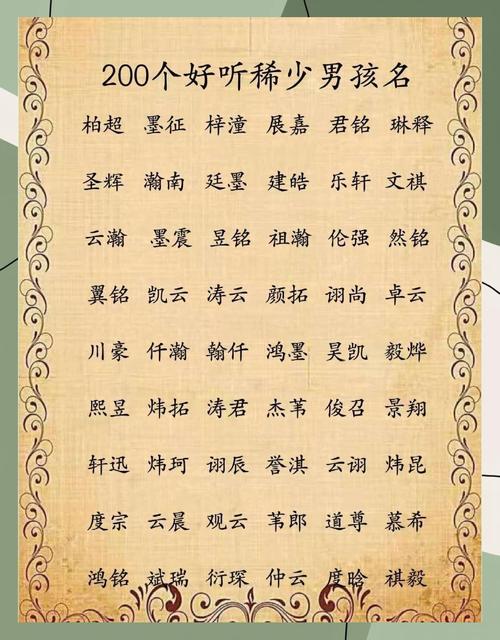 200个好听稀少男孩名
柏超 墨征 梓潼 展嘉 君铭 琳释
圣辉 瀚南 廷墨 建皓 乐轩 文祺
云瀚 墨震 昱铭 祖瀚 伦强 然铭
翼铭 凯云 涛云 颜拓 诩尚 卓云
川豪 仟瀚 翰仟 鸿墨 昊凯 毅烨
熙昱 炜拓 涛君 杰苇 俊召 景翔
轩迅 炜珂 诩辰 誉淇 云诩 炜昆
度宗 云晨 观云 苇郎 道尊 慕希
鸿铭 斌瑞 衍琛 仲云 度晗 祺毅